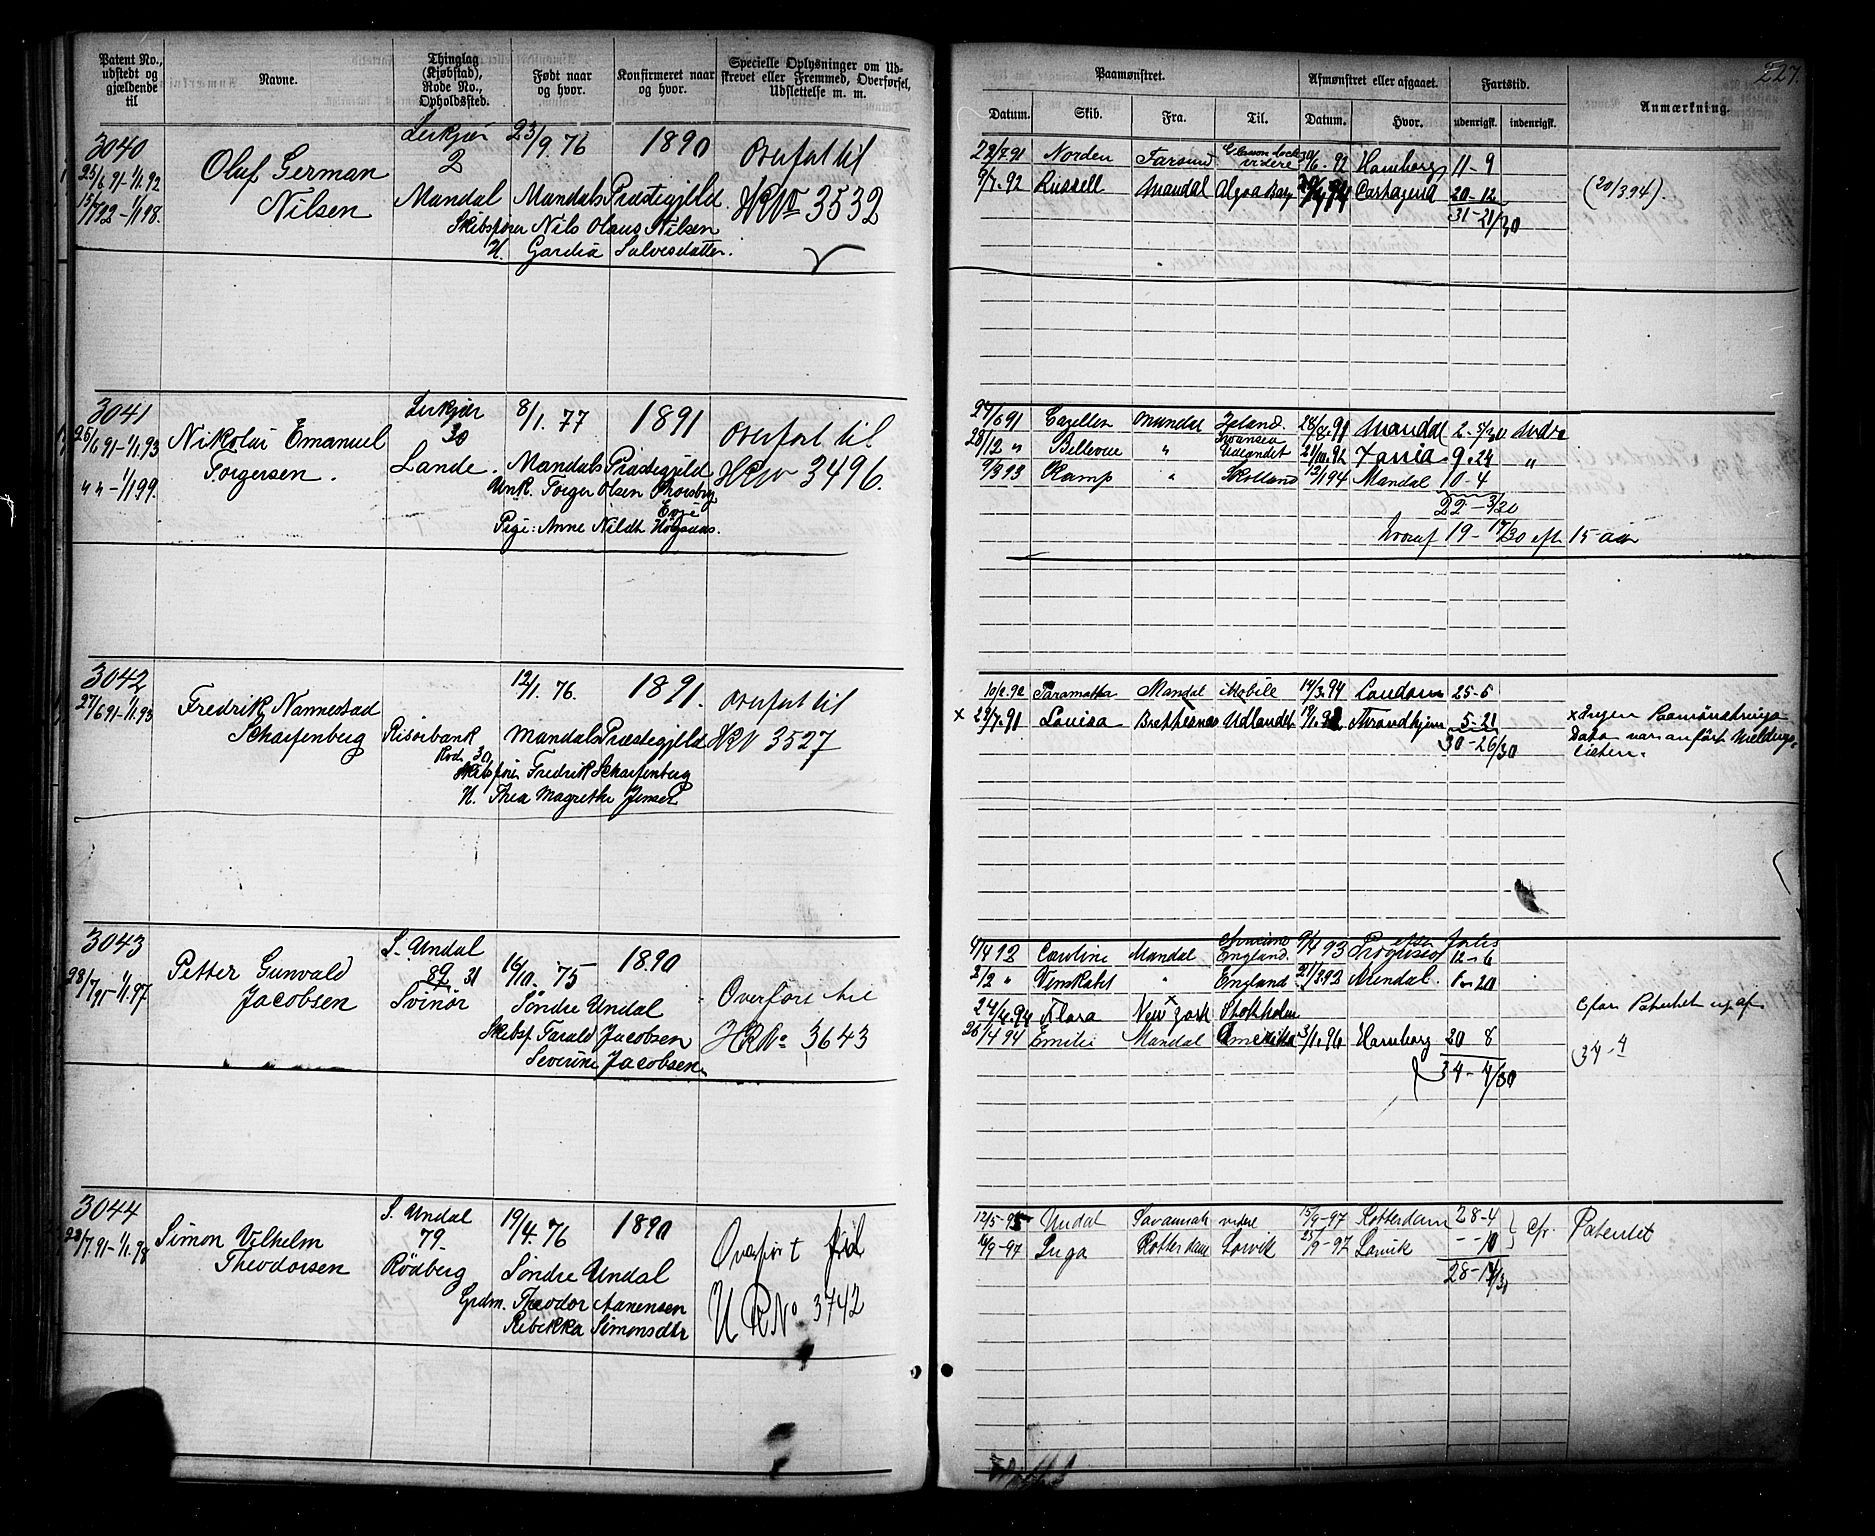 227.
Patent No., udstedt og gjældende til
Navne.
Thinglag (Kjøbstad), Rode No., Opholdssted.
Født naar og hvor.
Konfirmeret naar og hvor.
Specielle Oplysninger om Udskrevet eller Fremmed, Overførsel, Udslettelse m. m.
Paamønstret.
Afmønstret eller afgaaet.
Fartstid.
Anmærkning.
Datum.
Skib.
Fra.
Til.
Datum.
Hvor.
udenrigsk.
indenrigsk.
3040
25/6 91-1/1 92
15/7 92-1/1 98.
Oluf German
Nilsen
2
Mandal
23/9. 76
Mandals Præstegjeld
1890
Skibsfører Nils Olaus Nilsen
H. Gardia Salvesdatter.
Overført til
HR No 3532
22/7 91 Norden Farsund videre Hamborg 11-9
9/7. 92 Russell Mandal Algoa Bay Cartagena 20-12
31-21/30
(20/3 94).
3041
25/6 91-1/1 93
" " - 1/1 99.
Nikolai Emanuel
Torgersen.
30
Lande.
8/1. 77
1891.
Mandals Præstegjeld
Unk. Torger Olsen
Pige: Anne Nildt.
Overført til
HR No 3496.
27/6 91 Mandal Jylland 28/8 91 Mandal
28/12 " Bellevue " Udlandet 21/10. 92 9. 24 "
9/3 93 Kamp " Holland 12/1 94 Mandal 10-4
22-3/30
hvoraf 19-17/30 eft. 15 aar
3042
27/6 91-1/1 93
Fredrik Nannestad
Scharfenberg
Risøbank
Rode 30
12/1. 76.
1891.
Mandals Præstegjeld
Skibsfører Fredrik Scharfenberg
H. Thea Magrethe Jensen
Overført til
HR No 3527
10/2. 92 Paramatta Mandal Mobile 14/3. 94 London 25-5
x 29/7. 91 Louisa Udlandet Trondhjem 5-21
30-26/30
x Ingen Paamønstrings-
Dato var anført Meldings-
listen.
3043
28/7 91-1/1. 97
Petter Gunvald
Jacobsen
S. Undal
89 31
Svinør
16/10. 75
1890
Søndre Undal
Skibsf. Tarald Jacobsen
Severine Jacobsen.
Overført til
HR No 3643
4/4 92 Caroline Mandal England. 9/4 93 Progresso 12-6
2/2 " Venskabet " England 21/3 93 Arendal. 1-20
24/4. 94 Klara New York Stokholm
26/4 94 Emilie Mandal Amerika 3/1. 96 Hamborg 20 8
34-4/30
34-4
3044
28/7. 91-1/1. 98
Simon Vilhelm
Theodorsen
S. Undal
79.
Rødberg
19/4. 76
1890
Søndre Undal
Grdm. Theodor Aanensen
Rebekka Simonsdtr
Overført til
H R No 3742
12/5-95 Undal Savannah videre 15/9-97 Rotterdam 28-4
16/9-97 Inga Rotterdam Larvik 25/9-97 Larvik - - 10
28-14/30
Cfr. Patentet